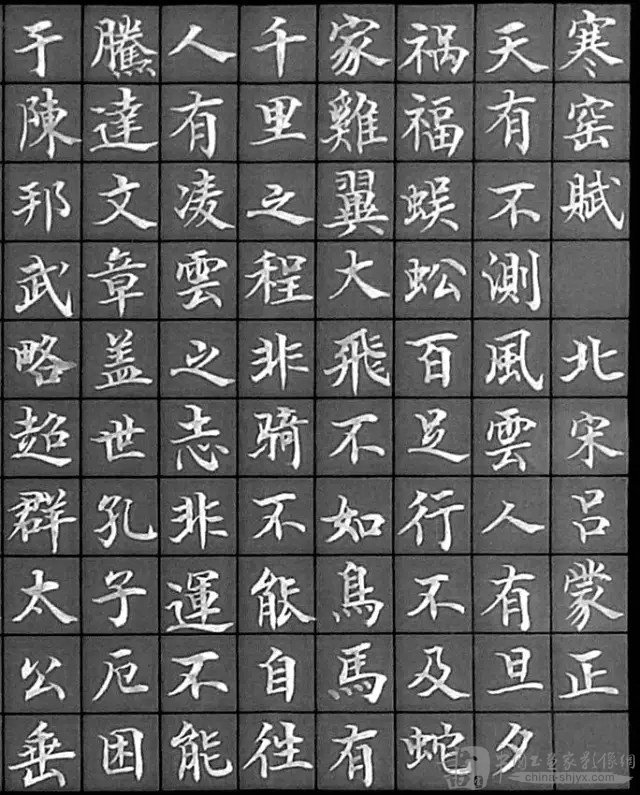 寒窑賦 北宋呂蒙正
天有不測風雲人有旦夕
祸福蜈蚣百足行不及蛇
家雞翼大飛不如鳥馬有
千里之程非骑不能自往
人有凌雲之志非運不能
騰達文章盖世孔子厄困
于陳邦武略超群太公垂
中国书画家影像網
china-shjyx.com